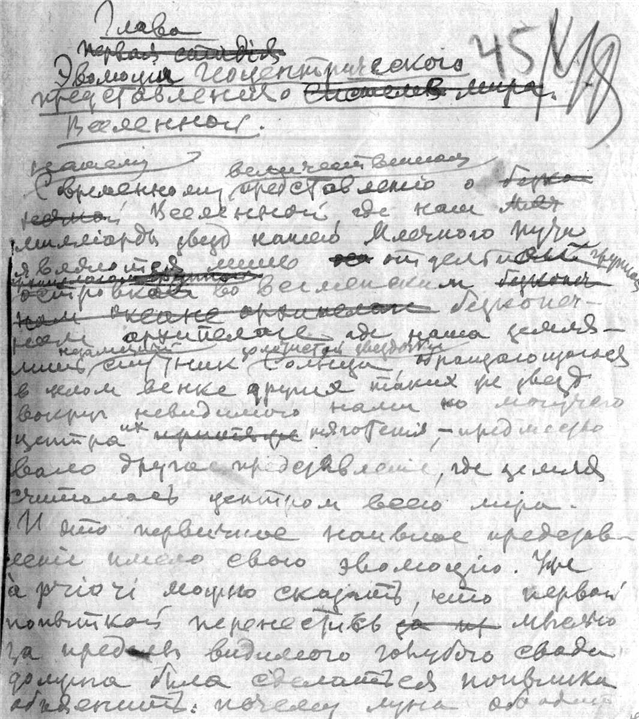 Глава
первая стадія
45
Эволюція геоцентрическаго
представленія о системѣ мира.
Вселенной.
нашему величественному
Современному представленію о
Вселенной где нам
милліарды звезд нашего Млечного пути
являются лишь отдельной группой
островков во вселенском
океане архипелаге безконеч-
ном архипелаге где наша земля—
лишь спутник золотистой звездочки Солнца обращающагося
в целом венке других таких же звезд
вокруг невидимого нами но могучего
центра их тяготенія, — предшество
вало другое представленіе, где земля
считалась центром всего мира.
И это первичное наивное представ-
леніе имело свою эволюцію. Уже
а ріоrі можно сказать, что первой
попыткой перенестись мыслью
за пределы видимого голубого свода
должна была сделаться попытка
объяснить: почему луна обходит